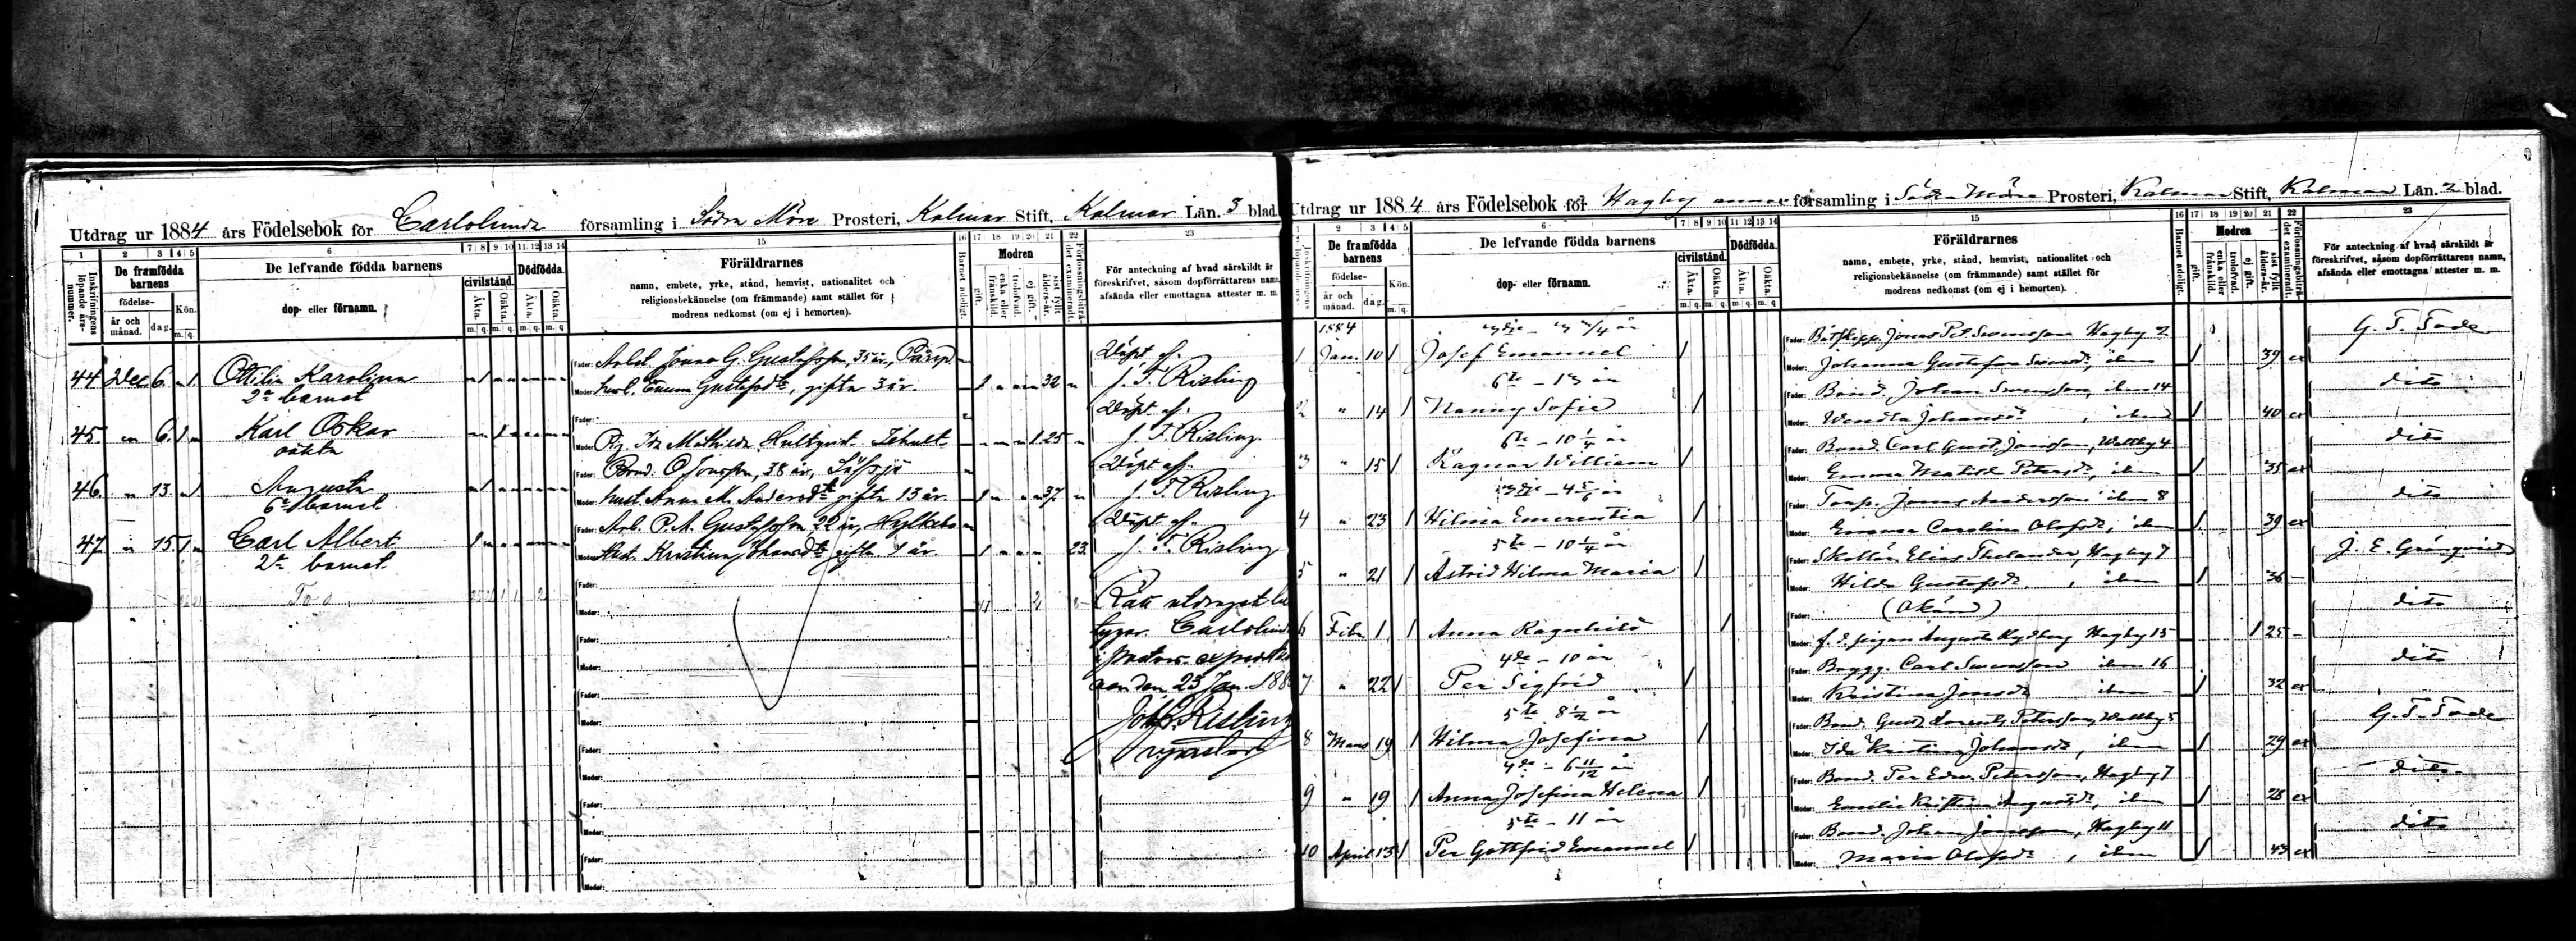 Utdrag ur 1884 års Födelsebok för Carlslunda församling i Södra Möre Prosteri, Kalmar Stift, Kalmar Län. 3 blad.
1 2 3 4 5 6 7 8 9 10 11 12 13 14 15 16 17 18 19 20 21 22 23
Inskrifningens löpande års-nummer.
De framfödda barnens
födelse-
år och månad.
dag.
Kön.
m. q.
De lefvande födda barnens
dop- eller förnamn.
civilstånd.
Äkta. Oäkta.
Dödfödda.
Äkta. Oäkta.
m. q. m. q. m. q. m. q.
Föräldrarnes
namn, embete, yrke, stånd, hemvist, nationalitet och
religionsbekännelse (om främmande) samt stället för
modrens nedkomst (om ej i hemorten).
Barnet adeligt.
Modren
gift.
enka eller frånskild.
trolofvad.
ej gift.
sist fyllt ålders-år.
Förlossningsbiträdet examineradt.
För anteckning af hvad särskildt är
föreskrifvet, såsom dopförrättarens namn,
afsända eller emottagna attester m. m.
44 Dec 6. Ottilia Karolina
2a barnet
Fader: Arbet. Jonas G. Gustafsson, 35 år,
Moder: hust. Emma Gustafsdr, gifta 3 år. 32
Döpt af.
J. F. Risling
45. 6. Karl Oskar
oäkta
Fader:
Moder: Pig. Ida Mathilda Hultqvist. 25
Döpt af.
J. F. Risling.
46. 13. Augusta
6te barnet.
Fader: Bond. O Jonsson, 38 år,
Moder: hust. Anna M. Andersdtr gifta 13 år. 37
Döpt af.
J. F. Risling
47 15 Carl Albert
2a barnet.
Fader: Arb. P. A. Gustafsson 22 år,
Moder: Hust. Kristina gifta 1 år. 23.
Döpt af.
J. F. Risling
Fader:
Moder:
Rätt utdraget
Carlslunda
den 23 Jan. 188
Joh. F. Risling
v. pastor
Utdrag ur 1884 års Födelsebok för Hagby annex församling i Södra Möre Prosteri, Kalmar Stift, Kalmar Län. 2 blad.
1 2 3 4 5 6 7 8 9 10 11 12 13 14 15 16 17 18 19 20 21 22 23
De framfödda barnens
födelse-
år och månad.
dag.
Kön.
m. q.
De lefvande födda barnens
dop- eller förnamn.
civilstånd.
Äkta. Oäkta.
Dödfödda.
Äkta. Oäkta.
Föräldrarnes
namn, embete, yrke, stånd, hemvist, nationalitet och
religionsbekännelse (om främmande) samt stället för
modrens nedkomst (om ej i hemorten).
Barnet adeligt.
Modren
gift.
enka eller frånskild.
trolofvad.
ej gift.
sist fyllt ålders-år.
Förlossningsbiträdet examineradt.
För anteckning af hvad särskildt är
föreskrifvet, såsom dopförrättarens namn,
afsända eller emottagna attester m. m.
1884
1 Jan. 10 Josef Emanuel
Fader: Båtskepp. Jonas Pet. Swensson Hagby 2
Moder: Johanna Gustafva Swensdr, ibm 39 ex
G. T. Tode
6te – 13 år
2 " 14 Nanny Sofia
Fader: Bond. Johan Swensson, ibm 14
Moder: Wendla Johansdr, ibm 40 ex
dito
6te – 10 1/4 år
3 " 15 Ragnar William
Fader: Bond. Carl Gust Jonsson, 4
Moder: Emma Matilda Petersdr, ibm 35 ex
dito
4 " 23 Hilma Emerentia
Fader: Torp. Jonas Andersson ibm 8
Moder: Emma Carolina Olofsdr, ibm 39 ex
dito
5te – 10 1/4 år
5 " 21 Astrid Hilma Maria
Fader: Elias Thelander, Hagby 7
Moder: Hilda Gustafsdr, ibm 36 –
J. E. Grönqvist
6 Febr 1 Anna Ragnhild
Fader: (Okänd)
Moder: f. d. pigan Augusta Rydberg Hagby 15 25 –
dito
4de – 10 år
7 " 22 Per Sigfrid
Fader: Brygg. Carl Swensson ibm 16
Moder: Kristina Jonsdr ibm 32 ex
dito
5te 8 1/2 år
8 Mars 19 Hilma Josefina
Fader: Bond. Gust Laurentz Petersson, 5
Moder: Ida Kristina Johansdr, ibm 29 ex
G. T. Tode
4de – 6 11/12 år
9 " 19 Anna Josefina Helena
Fader: Bond. Per Edw. Petersson, Hagby 7
Moder: Emelie Kristina Augustsdr, ibm 28 ex
dito
5te – 11 år
10 April 13 Per Gottfrid Emanuel
Fader: Bond. Johan Jonsson, Hagby 11
Moder: Maria Olofsdr, ibm 43 ex
dito